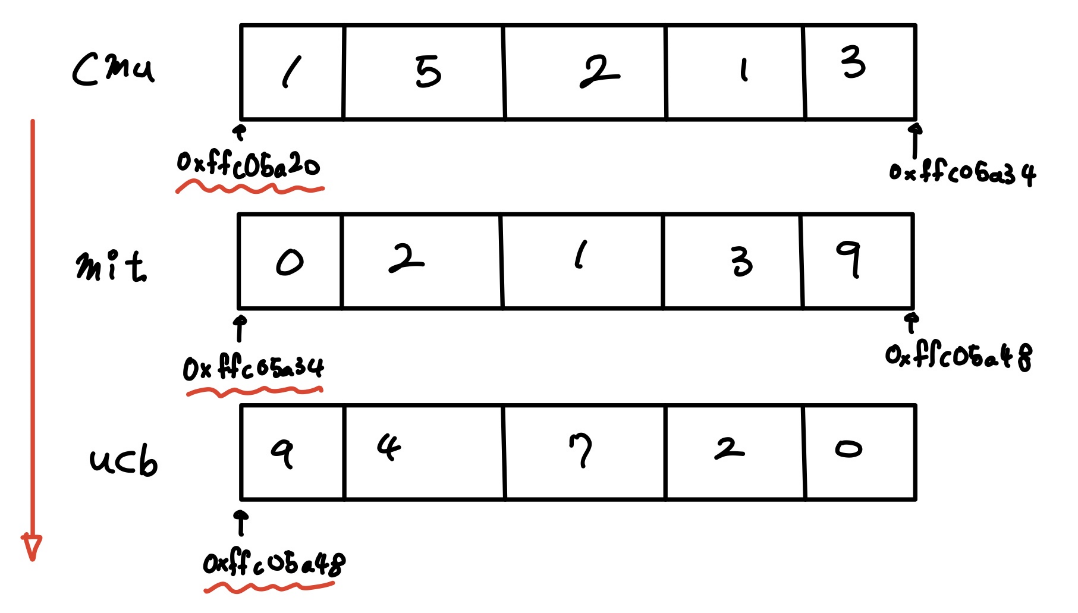 Cmu 1 5 2 1 3
0xffc05a20 0xffc05a34
mit 0 2 1 3 9
0xffc05a34 0xffc05a48
ucb 9 4 7 2 0
0xffc05a48